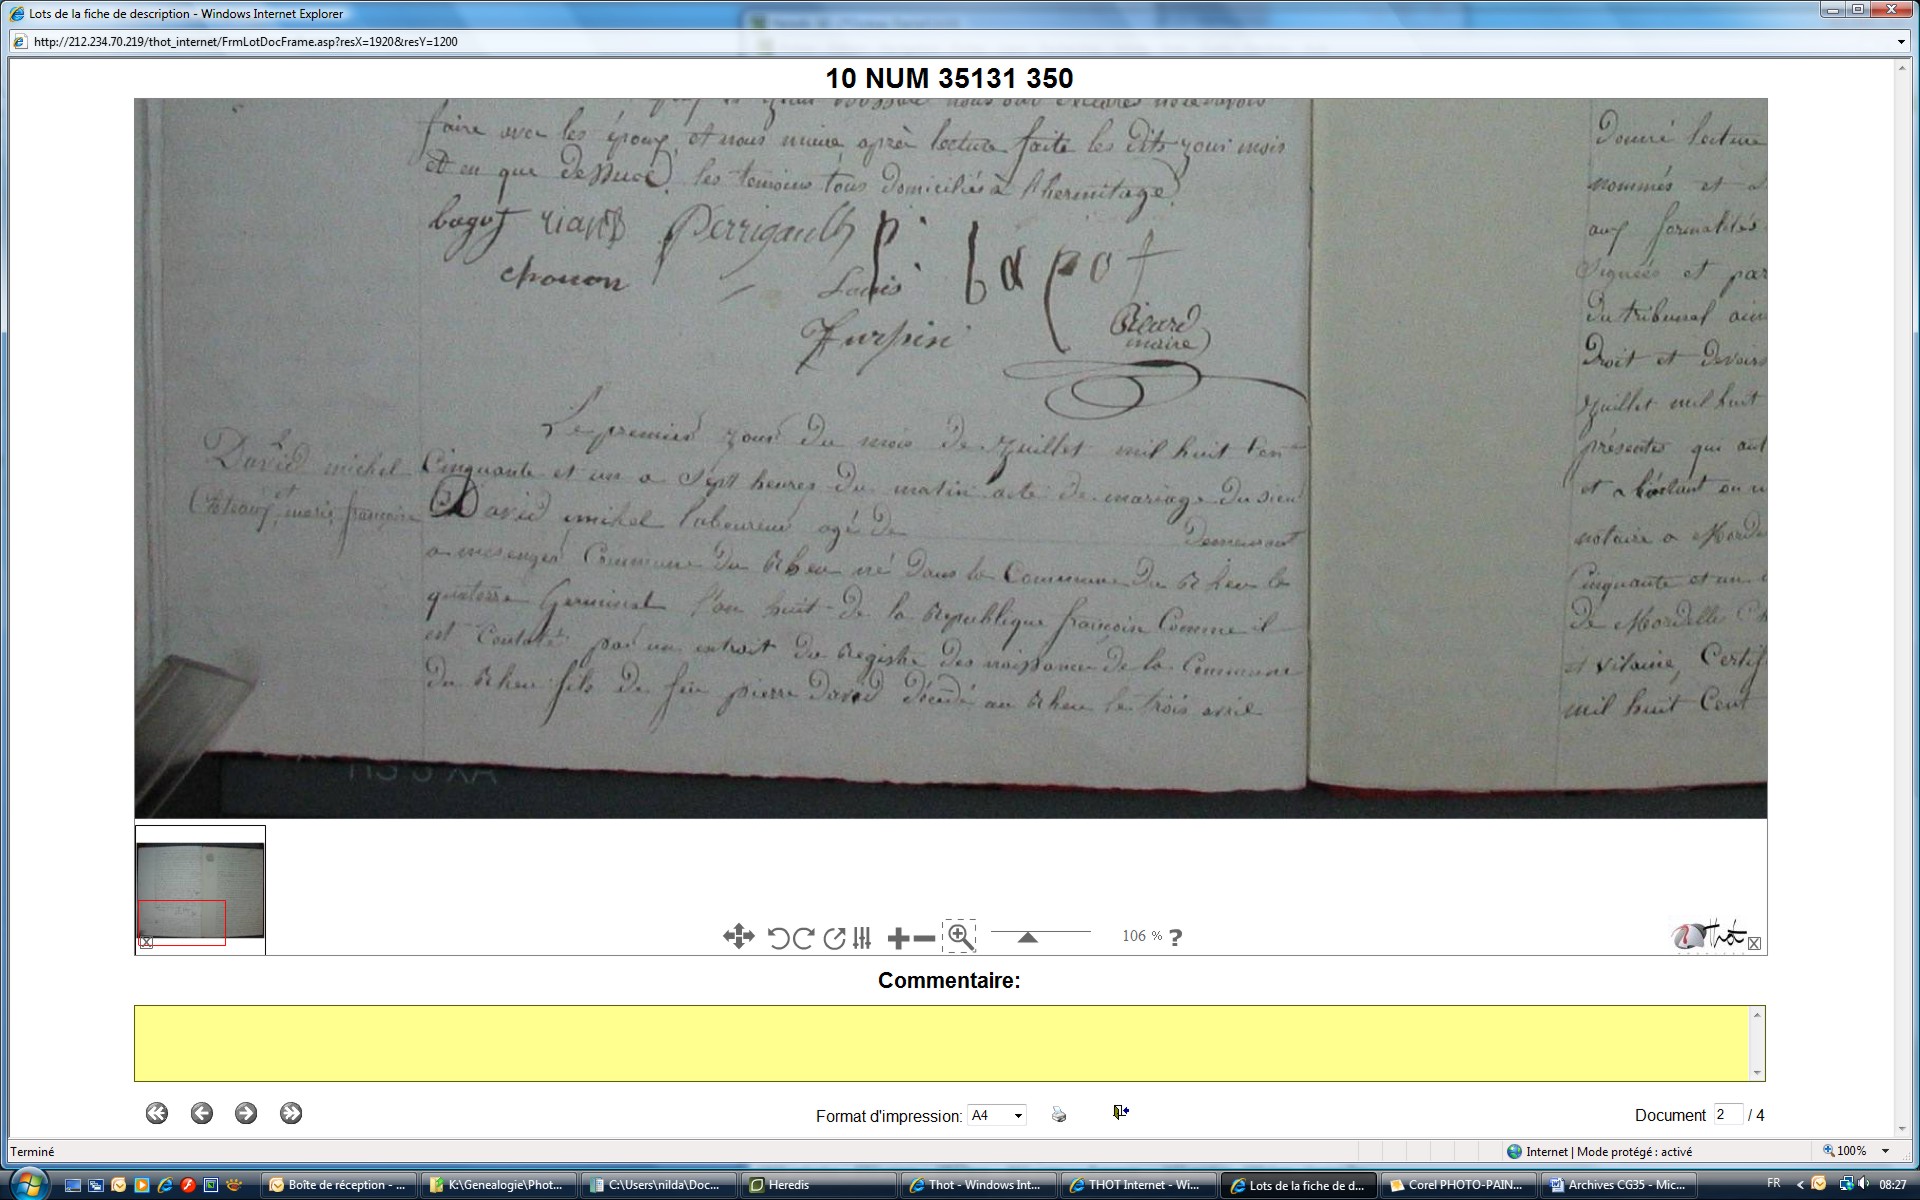 Lots de la fiche de description - Windows Internet Explorer
http://212.234.70.219/thot_internet/FrmLotDocFrame.asp?resX=1920&resY=1200
10 NUM 35131 350
faire avec les époux, et nous maire après lecture faite les dits jour mois
et an que dessus. les temoins tous domiciliés à l'hermitage
bagot riand Perrigault p. bapot
chouon Louis
Turpin
Picard
maire
Le premier jour du mois de Juillet mil huit cent
David michel
et
marie françoise
Cinquante et un a Sept heures du matin acte de mariage du sieur
David michel laboureur agé de demeurant
a Commune du Rheu né dans la Commune du Rheu le
quatorze Germinal l'an huit de la République françoise Comme il
est par un extrait du Registre des naissances de la Commune
du Rheu fils de feu pierre David décédé au Rheu le trois avril
Donné lecture
nommés et
aux formalités
Signées et par
du tribunal
Droit et devoirs
Juillet mil huit
présentes qui ont
et
notaire a Morde
Cinquante et un
de Mordelle
et vilaine, Certif
mil huit Cent
106 % ?
Thot
Commentaire:
Format d'impression: A4
Document 2 / 4
Terminé
Internet | Mode protégé : activé
100%
Boîte de réception - ...
K:\Genealogie\Phot...
C:\Users\nilda\Doc...
Heredis
Thot - Windows Int...
THOT Internet - Wi...
Lots de la fiche de d...
Corel PHOTO-PAIN...
Archives CG35 - Mic...
FR
08:27